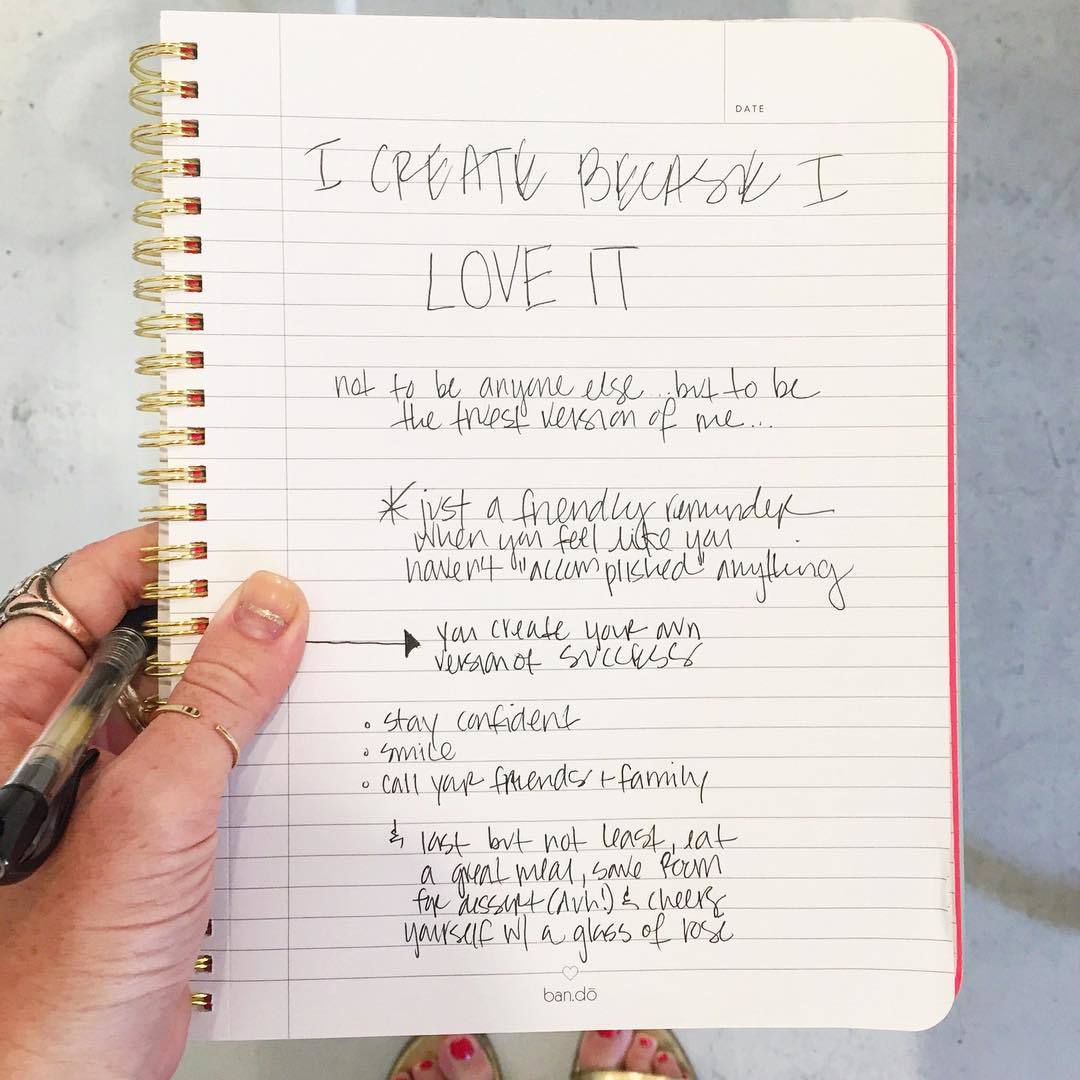 DATE
I CREATE BECASE I
LOVE IT
not to be anyone else...but to be
the truest version of me...
* just a friendly reminder
when you feel like you
havent "accomplished" anything
you create your own
version of SUCCESS
• stay confident
• smile
• call your friends + family
& last but not least, eat
a great meal, save room
for dissert (duh!) & cheers
yourself w/ a glass of rose
ban.dō